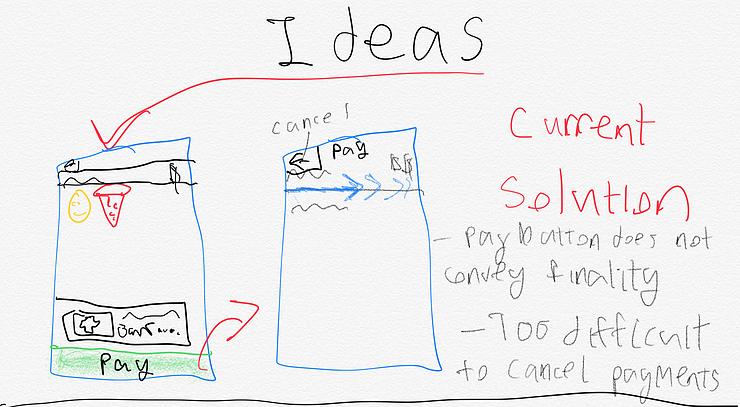 Ideas
cancel
Pay
Current
Solution
- pay button does not
convey finality
- Too difficult
to cancel payments
Pay